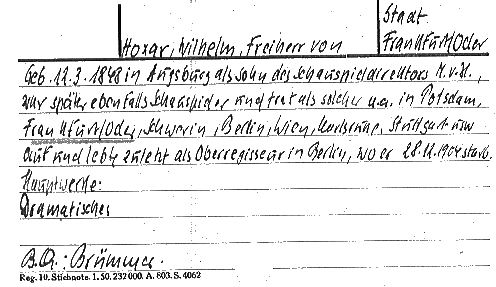 Stadt
Hoxar, Wilhelm, Freiherr von Frankfurt/Oder
Geb. 12.3.1848 in Augsburg als Sohn des Schauspieldirektors M.v.H.,
war später ebenfalls Schauspieler und trat als solcher u.a. in Potsdam,
Frankfurt/Oder, Schwerin, Berlin, Wien, Karlsruhe, Stuttgart usw
auf und lebte zuletzt als Oberregisseur in Berlin, wo er 28.11.1904 starb.
Hauptwerke:
Dramatisches
B.Qu.: Brümmer.
Reg. 10. Stichnote. 1. 50. 232000. A. 603. S. 4062